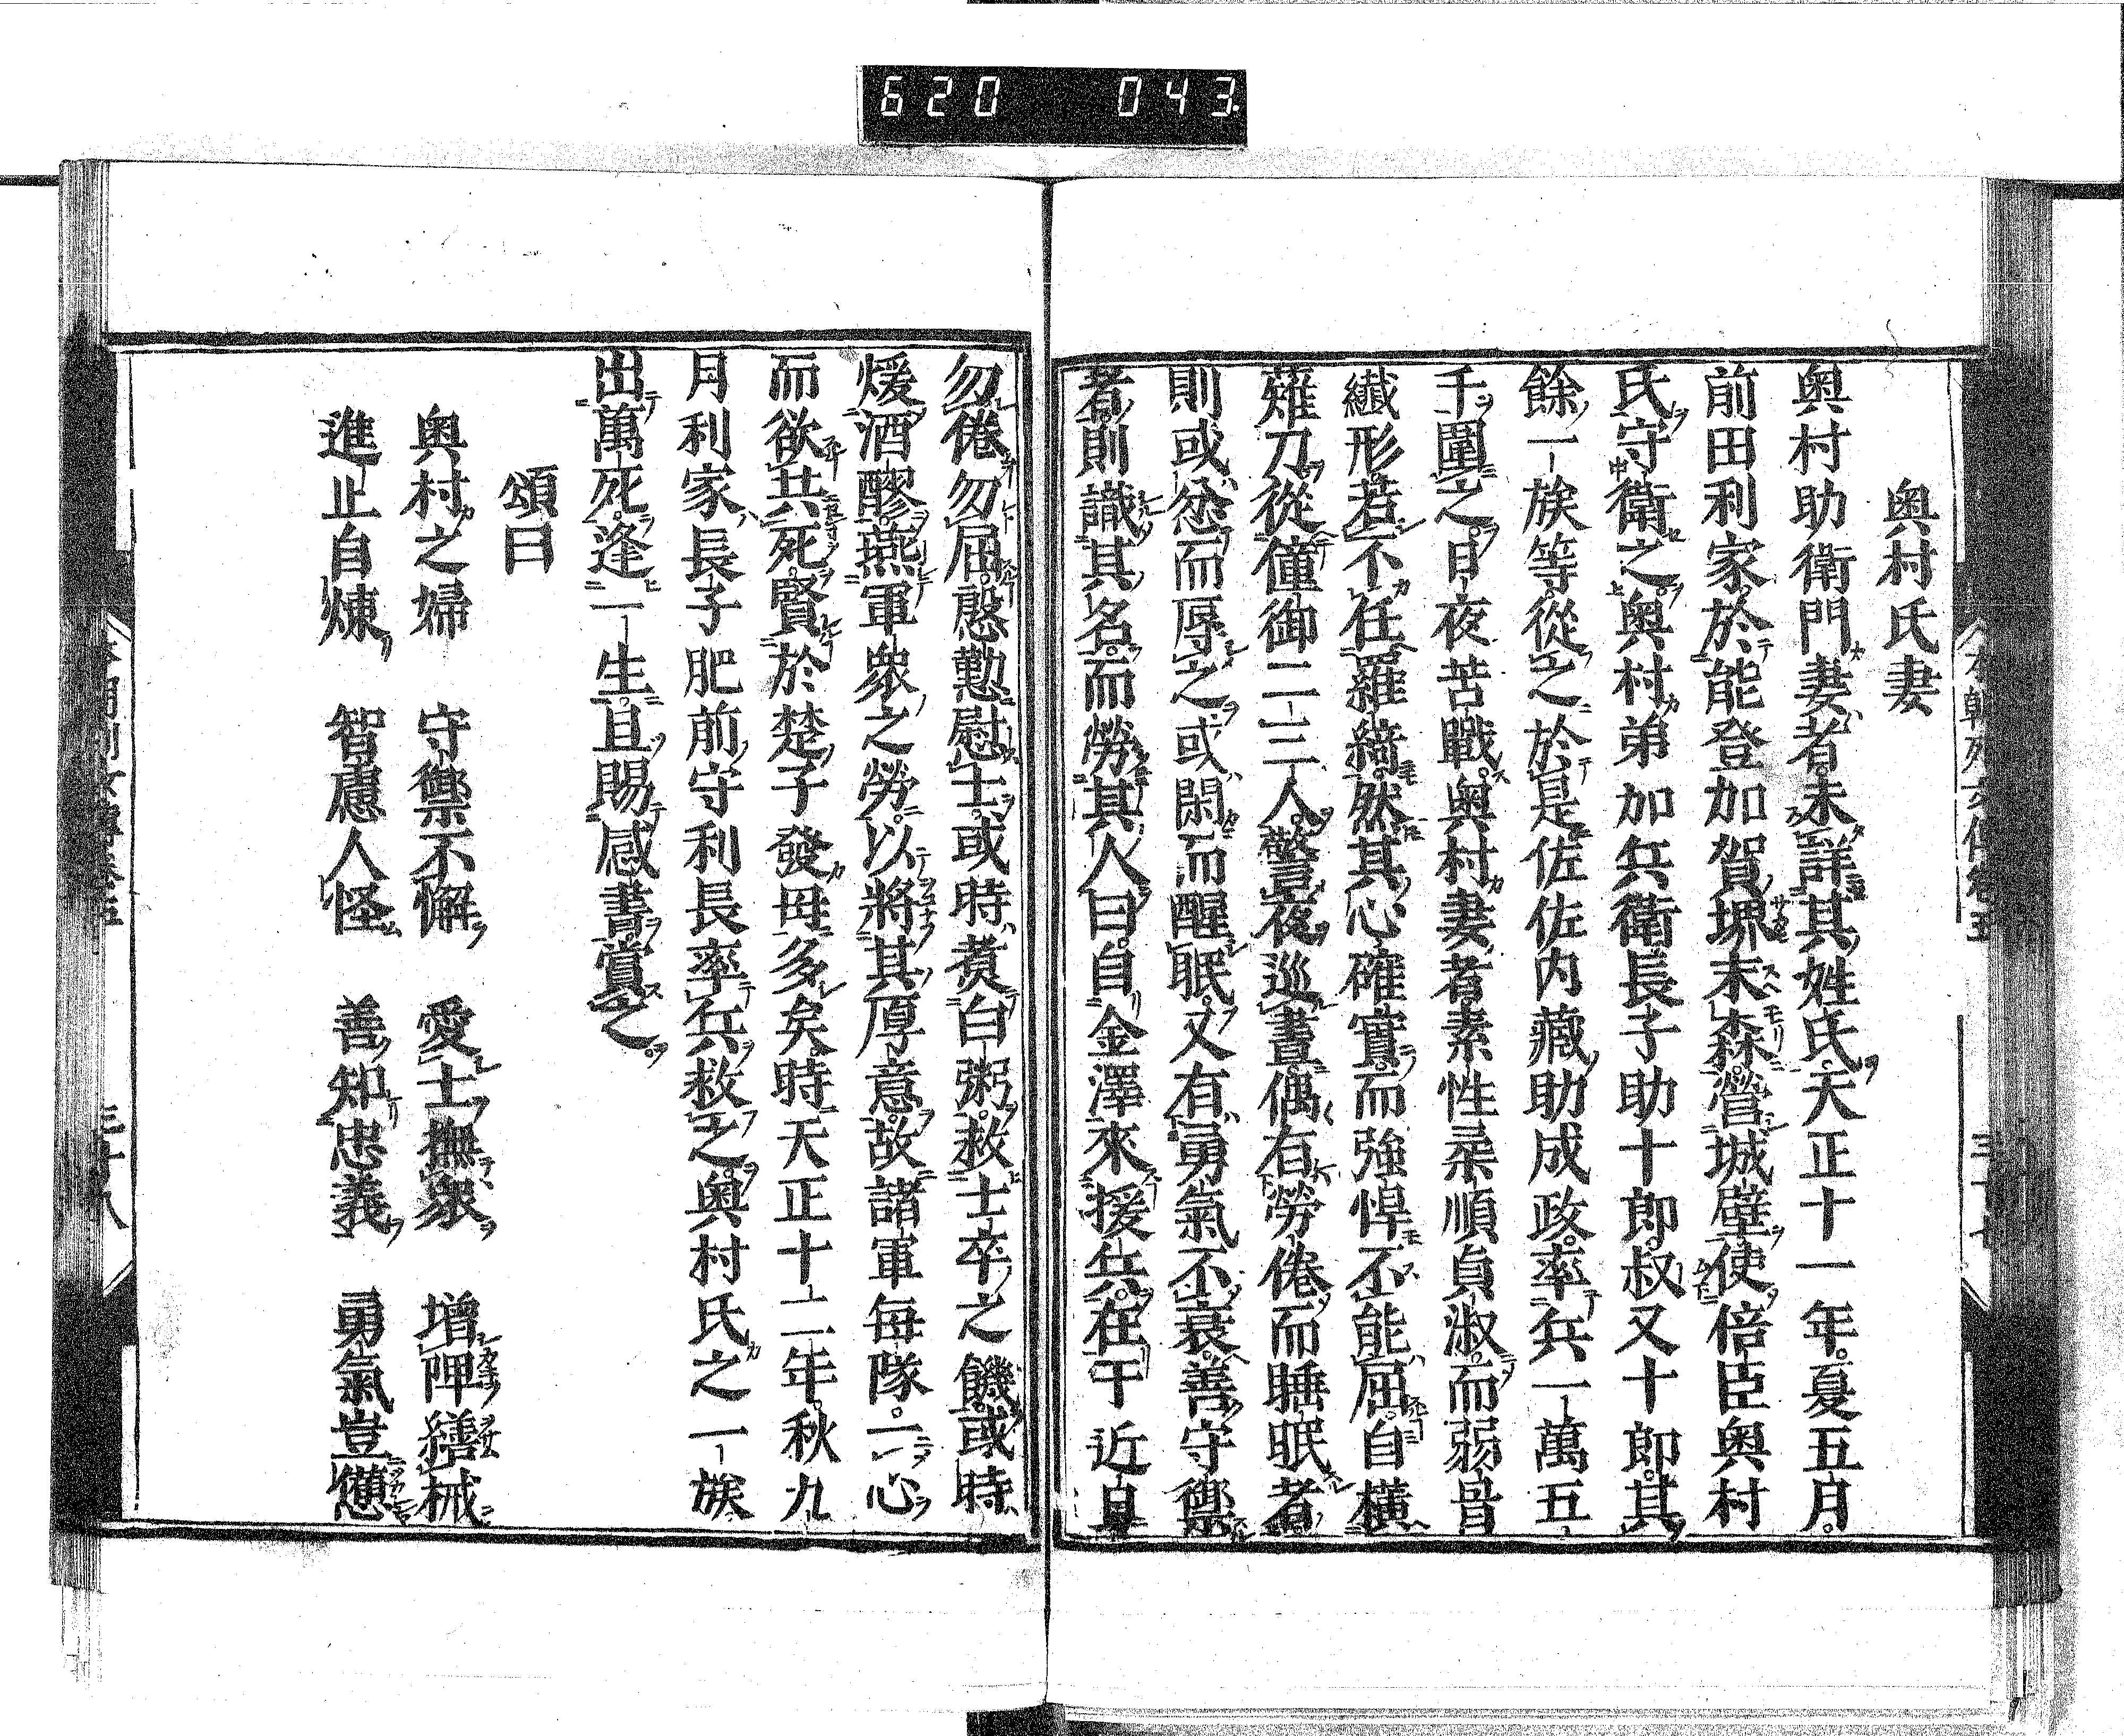 620 043
奥村氏妻
奥村助衛門妻者未詳其姓氏。天正十一年。夏五月。
前田利家。於能登加賀堺末森。營城壁。使倍臣奥村
氏守衛之。奥村弟加兵衛長子助十郎。叔又十郎。其
餘一族等。從之。於是佐佐内藏助成政。率兵一萬五
千。圍之。日夜苦戰。奥村妻者。素性柔順貞淑。而弱骨
纎形。若不任羅綺。然其心確實。而強悍不能屈。自橫
薙刀。從僮御二三人。警夜巡晝。偶有勞倦而睡眠者。
則或忿而辱之。或閑而醒眠。又有勇氣不衰。善守禦
者。則識其名。而勞其人曰。自金澤來援兵。在于近。且
勿倦勿屈。慇懃慰士。或時煑白粥。救士卒之饑。或時
煖酒醪。燕軍衆之勞。以將其厚意。故諸軍毎隊。一心
而欲共死。賢於楚子發母多矣。時天正十二年。秋九
月利家長子肥前守利長率兵救之。奥村氏之一族
出萬死。逢一生。且賜感書賞之。
頌曰
奥村之婦 守禦不懈 愛士撫衆 增陴繕械
進止自煉 智慮人怪 善知忠義 勇氣豈憊
本朝列女傳卷五 三十八